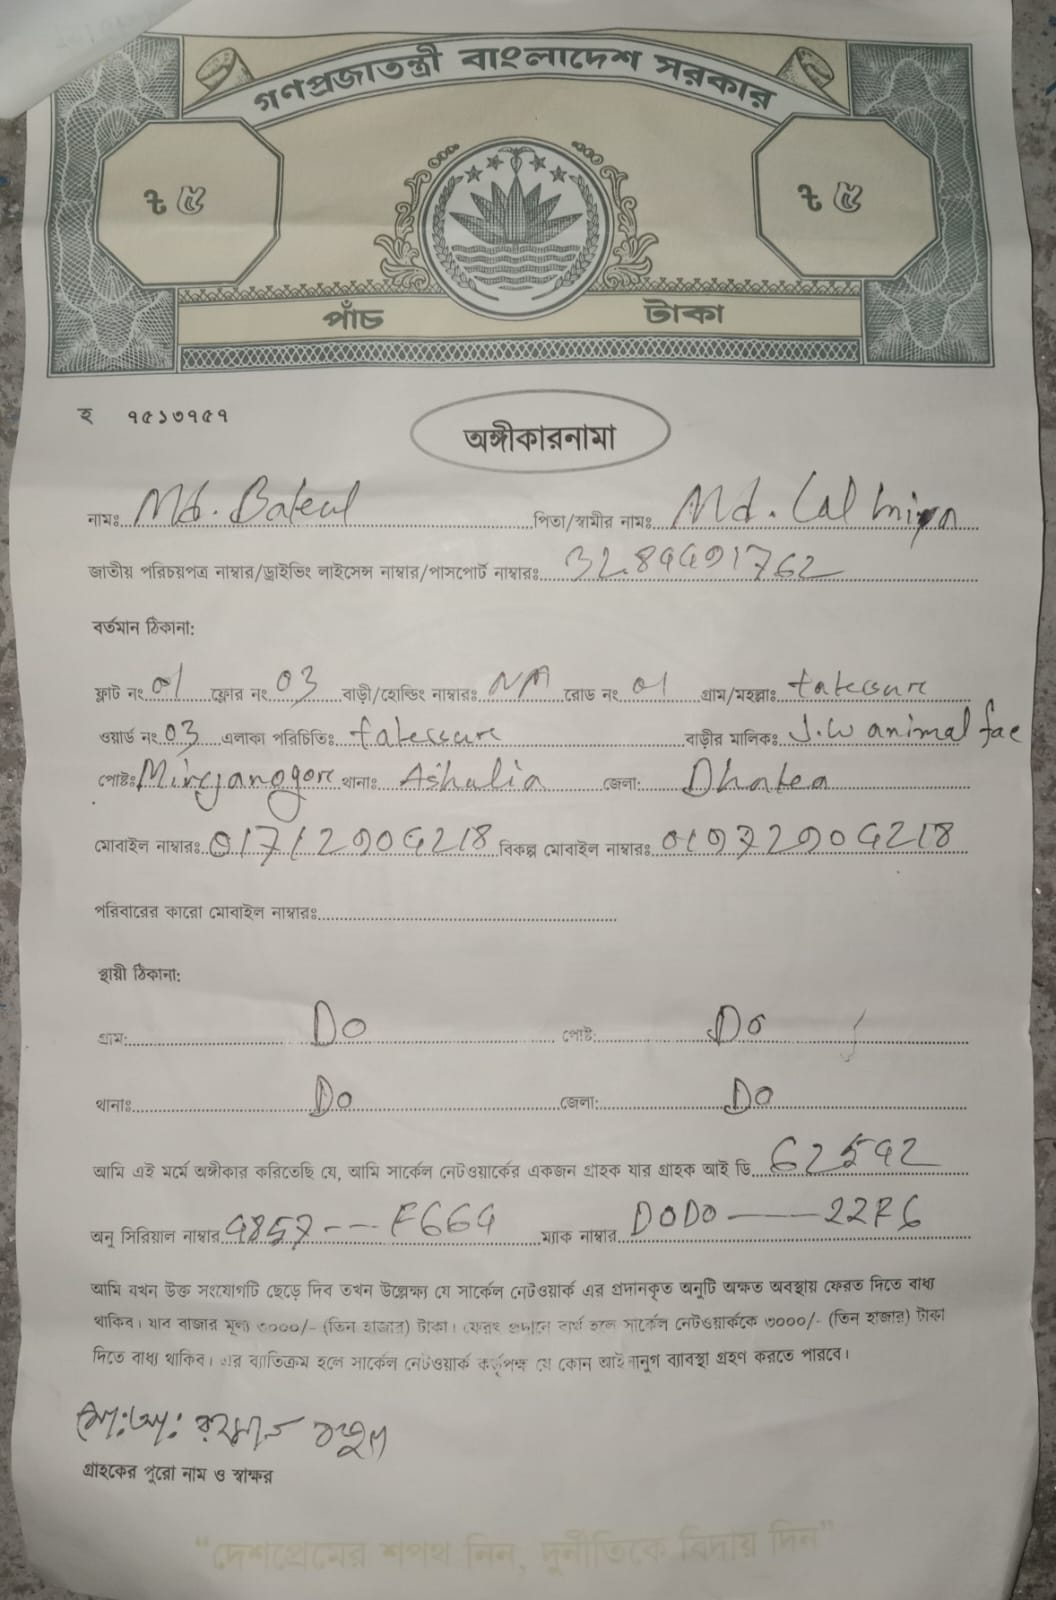 গণপ্রজাতন্ত্রী বাংলাদেশ সরকার
৳ ৫ ৳ ৫
পাঁচ টাকা
হ ৭৫১৩৭৫৭
অঙ্গীকারনামা
নামঃ Md. পিতা/স্বামীর নামঃ Md. Lal miya
জাতীয় পরিচয়পত্র নাম্বার/ড্রাইভিং লাইসেন্স নাম্বার/পাসপোর্ট নাম্বারঃ
বর্তমান ঠিকানা:
ফ্লাট নং 01 ফ্লোর নং 03 বাড়ী/হোল্ডিং নাম্বারঃ N/A রোড নং 01 গ্রাম/মহল্লাঃ
ওয়ার্ড নং 03 এলাকা পরিচিতিঃ বাড়ীর মালিকঃ J.W animal fac
পোষ্টঃ থানাঃ Ashulia জেলা: Dhaka
মোবাইল নাম্বারঃ বিকল্প মোবাইল নাম্বারঃ
পরিবারের কারো মোবাইল নাম্বারঃ
স্থায়ী ঠিকানা:
গ্রাম: Do পোষ্ট: Do
থানাঃ Do জেলা: Do
আমি এই মর্মে অঙ্গীকার করিতেছি যে, আমি সার্কেল নেটওয়ার্কের একজন গ্রাহক যার গ্রাহক আই ডি 62542
অনু সিরিয়াল নাম্বার 4857---F664 ম্যাক নাম্বার D0D0---22F6
আমি যখন উক্ত সংযোগটি ছেড়ে দিব তখন উল্লেক্ষ্য যে সার্কেল নেটওয়ার্ক এর প্রদানকৃত অনুটি অক্ষত অবস্থায় ফেরত দিতে বাধ্য
থাকিব। যার বাজার মূল্য ৩০০০/- (তিন হাজার) টাকা। ফেরৎ প্রদানে ব্যর্থ হলে সার্কেল নেটওয়ার্ককে ৩০০০/- (তিন হাজার) টাকা
দিতে বাধ্য থাকিব। এর ব্যাতিক্রম হলে সার্কেল নেটওয়ার্ক কর্তৃপক্ষ যে কোন আইনানুগ ব্যাবস্থা গ্রহণ করতে পারবে।
গ্রাহকের পুরো নাম ও স্বাক্ষর
“দেশপ্রেমের শপথ নিন, দুর্নীতিকে বিদায় দিন”